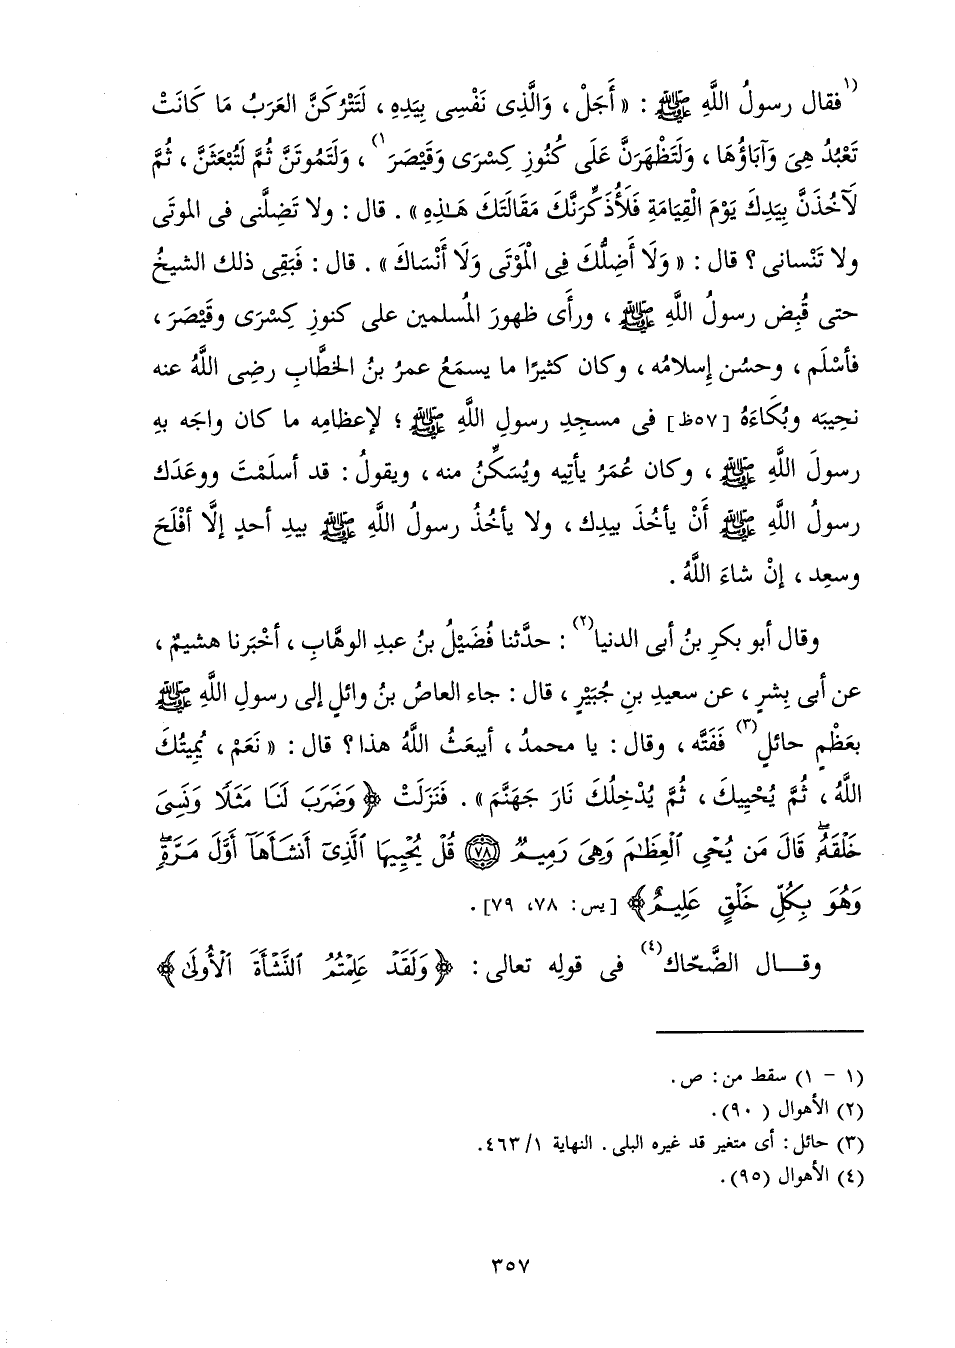 (١) فقال رسولُ اللَّهِ ﷺ : « أَجَلْ ، وَالَّذِى نَفْسِى بِيَدِهِ ، لَتَتْرُكَنَّ العَرَبُ مَا كَانَتْ
تَعْبُدُ هِىَ وَآبَاؤُهَا ، وَلَتَظْهَرَنَّ عَلَى كُنُوزِ كِسْرَى وَقَيْصَرَ (١) ، وَلَتَمُوتَنَّ ثُمَّ لَتُبْعَثَنَّ ، ثُمَّ
لَآخُذَنَّ بِيَدِكَ يَوْمَ الْقِيَامَةِ فَلَأُذَكِّرَنَّكَ مَقَالَتَكَ هَـٰذِهِ » . قال : ولا تَضِلَّنى فى الموتَى
ولا تَنْسانى ؟ قال : « وَلَا أَضِلُّكَ فِى الْمَوْتَى وَلَا أَنْسَاكَ » . قال : فَبَقِى ذلك الشيخُ
حتى قُبِض رسولُ اللَّهِ ﷺ ، ورأَى ظهورَ المُسلمين على كنوزِ كِسْرَى وقَيْصَرَ ،
فأسْلَم ، وحسُن إِسلامُه ، وكان كثيرًا ما يسمَعُ عمرُ بنُ الخطَّابِ رضِى اللَّهُ عنه
نحِيبَه وبُكَاءَهُ [ ٥٧ظ ] فى مسجدِ رسولِ اللَّهِ ﷺ ؛ لإعظامِه ما كان واجَه بهِ
رسولَ اللَّهِ ﷺ ، وكان عُمَرُ يأتِيه ويُسَكِّنُ منه ، ويقولُ : قد أسلَمْتَ ووعَدَك
رسولُ اللَّهِ ﷺ أَنْ يأخُذَ بيدِك ، ولا يأخُذُ رسولُ اللَّهِ ﷺ بيدِ أحدٍ إلَّا أفْلَحَ
وسعِد ، إنْ شاءَ اللَّهُ .
وقال أبو بكرِ بنُ أبى الدنيا(٢) : حدَّثنا فُضَيْلُ بنُ عبدِ الوهَّابِ ، أخْبَرنا هشيمٌ ،
عن أبى بِشرٍ ، عن سعيدِ بنِ جُبَيْرٍ ، قال : جاء العاصُ بنُ وائلٍ إلى رسولِ اللَّهِ ﷺ
بعَظْمٍ حائلٍ(٣) فَفَتَّه ، وقال : يا محمدُ ، أيبعَثُ اللَّهُ هذا ؟ قال : « نَعَمْ ، يُمِيتُكَ
اللَّهُ ، ثُمَّ يُحْيِيكَ ، ثُمَّ يُدْخِلُكَ نَارَ جَهَنَّمَ » . فَنَزَلَتْ ﴿ وَضَرَبَ لَنَا مَثَلًا وَنَسِىَ
خَلْقَهُۥۖ قَالَ مَن يُحْىِ ٱلْعِظَـٰمَ وَهِىَ رَمِيمٌ ٧٨ قُلْ يُحْيِيهَا ٱلَّذِىٓ أَنشَأَهَآ أَوَّلَ مَرَّةٍۖ
وَهُوَ بِكُلِّ خَلْقٍ عَلِيمٌ ﴾ [ يس : ٧٨، ٧٩] .
وقـــال الضَّحّاك(٤) فى قولِه تعالى : ﴿ وَلَقَدْ عَلِمْتُمُ ٱلنَّشْأَةَ ٱلْأُولَىٰ ﴾
(١ - ١) سقط من : ص .
(٢) الأهوال ( ٩٠) .
(٣) حائل : أى متغير قد غيره البلى . النهاية ١/ ٤٦٣.
(٤) الأهوال (٩٥) .
٣٥٧